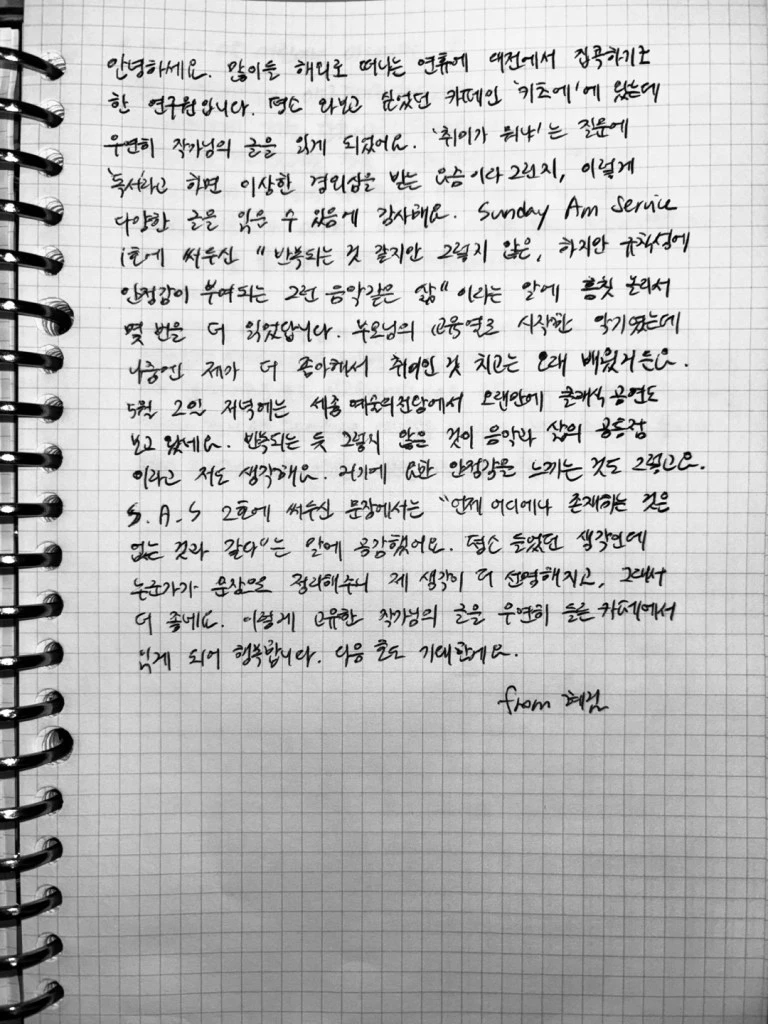 안녕하세요. 많이들 해외로 떠나는 연휴에 대전에서 집콕하기로
한 연구원입니다. 평소 와보고 싶었던 카페인 '키츠에'에 왔는데
우연히 작가님의 글을 읽게 되었어요. '취미가 뭐냐'는 질문에
'독서'라고 하면 이상한 경외심을 받는 요즘이라 그런지, 이렇게
다양한 글을 읽을 수 있음에 감사해요. Sunday Am Service
1호에 써두신 "반복되는 것 같지만 그렇지 않은, 하지만 규칙성에
안정감이 부여되는 그런 음악같은 삶"이라는 말에 흠칫 놀라서
몇 번을 더 읽었답니다. 부모님의 교육열로 시작한 악기였는데
나중엔 제가 더 좋아해서 취미인 것 치고는 오래 배웠거든요.
5월 2일 저녁에는 세종 예술의전당에서 오랜만에 클래식 공연도
보고 왔네요. 반복되는 듯 그렇지 않은 것이 음악과 삶의 공통점
이라고 저도 생각해요. 거기에 묘한 안정감을 느끼는 것도 그렇고요.
S.A.S 2호에 써두신 문장에서는 "언제 어디에나 존재하는 것은
없는 것과 같다"는 말에 공감했어요. 평소 들었던 생각인데
누군가가 문장으로 정리해주니 제 생각이 더 선명해지고, 그래서
더 좋네요. 이렇게 고유한 작가님의 글을 우연히 들른 카페에서
읽게 되어 행복합니다. 다음 호도 기대할게요.
from